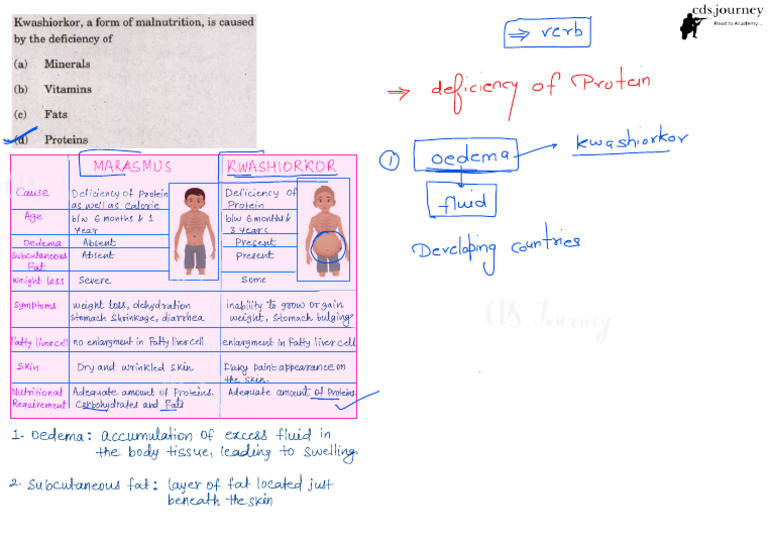 Kwashiorkor, a form of malnutrition, is caused
by the deficiency of
(a) Minerals
(b) Vitamins
(c) Fats
(d) Proteins
cds.journey
Road to Academy...
→ verb
⇒ deficiency of Protein
① oedema → kwashiorkor
fluid
Developing countries
CDS Journey
MARASMUS KWASHIORKOR
Cause Deficiency of Protein Deficiency of
as well as calorie Protein
Age b/w 6 months & 1 b/w 6 months &
year 3 years
Oedema Absent Present
Subcutaneous Absent Present
Fat
Weight loss Severe Some
Symptoms weight loss, dehydration inability to grow or gain
stomach shrinkage, diarrhea weight, stomach bulging
Fatty liver cell no enlargment in Fatty liver cell enlargment in Fatty liver cell
Skin Dry and wrinkled skin Flaky paint appearance on
the skin.
Nutritional Adequate amount of Proteins, Adequate amount of Proteins
Requirement Carbohydrates and Fats
1. Oedema: accumulation of excess fluid in
the body tissue, leading to swelling.
2. Subcutaneous fat: layer of fat located just
beneath the skin